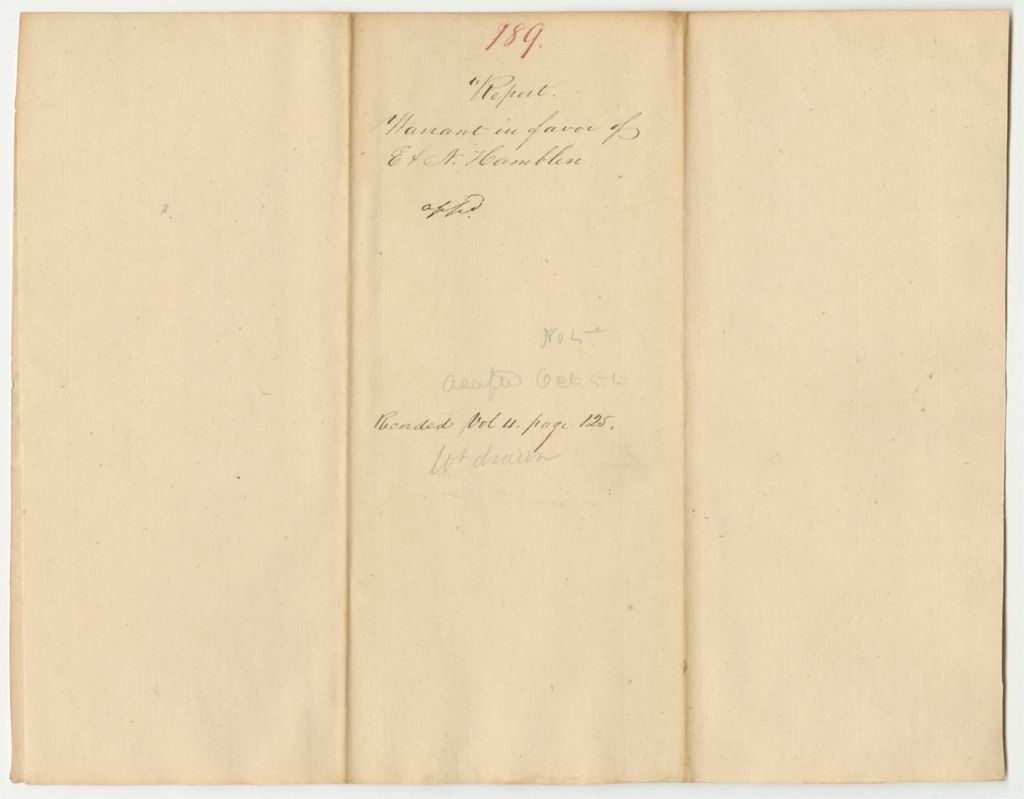 189.
Report.
Warrant in favor of
E & N. Hamblen
appd.
accepted Oct
Recorded Vol 4. page 125.
Wt drawn